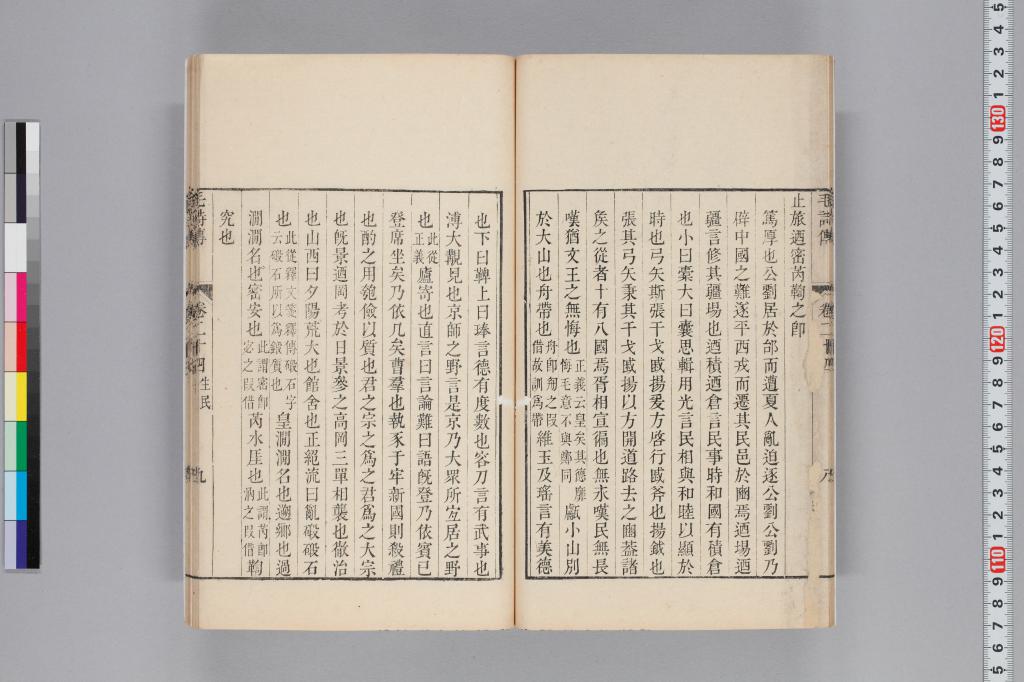 止旅迺密芮鞫之卽
篤厚也公劉居於邰而遭夏人亂迫逐公劉公劉乃
辟中國之難遂平西戎而遷其民邑於豳焉迺場迺
疆言修其疆場也迺積迺倉言民事時和國有積倉
也小曰橐大曰囊思輯用光言民相與和睦以顯於
時也弓矢斯張干戈戚揚爰方啓行戚斧也揚鉞也
張其弓矢秉其干戈戚揚以方開道路去之豳葢諸
矦之從者十有八國焉胥相宣徧也無永嘆民無長
嘆猶文王之無悔也正義云皇矣其德靡悔毛意不與鄭同巘小山別
於大山也舟帶也舟卽匊之叚借故訓爲帶維玉及瑤言有美德
也下曰鞞上曰琫言德有度數也容刀言有武事也
溥大觀見也京師之野言是京乃大衆所宐居之野
也此從正義廬寄也直言曰言論難曰語旣登乃依賓已
登席坐矣乃依几矣曹羣也執豕于牢新國則殺禮
也酌之用匏儉以質也君之宗之爲之君爲之大宗
也旣景迺岡考於日景參之高岡三單相襲也徹治
也山西曰夕陽荒大也館舍也正絕流曰亂碫碫石
也此從釋文箋釋傳碫石字云碫石所以爲鍛質也皇澗澗名也遡鄉也過
澗澗名也密安也此謂密卽宓之叚借芮水厓也此謂芮卽汭之叚借鞫
究也
毛詩傳
卷二十四
生民
九